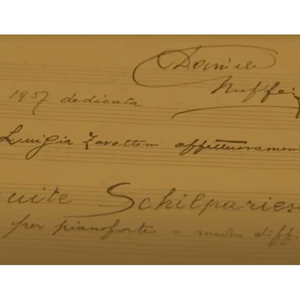 Daniele
1957 dedicata
Luigia Zavattoni affettuosamen
uite Schilparies
per pianoforte e